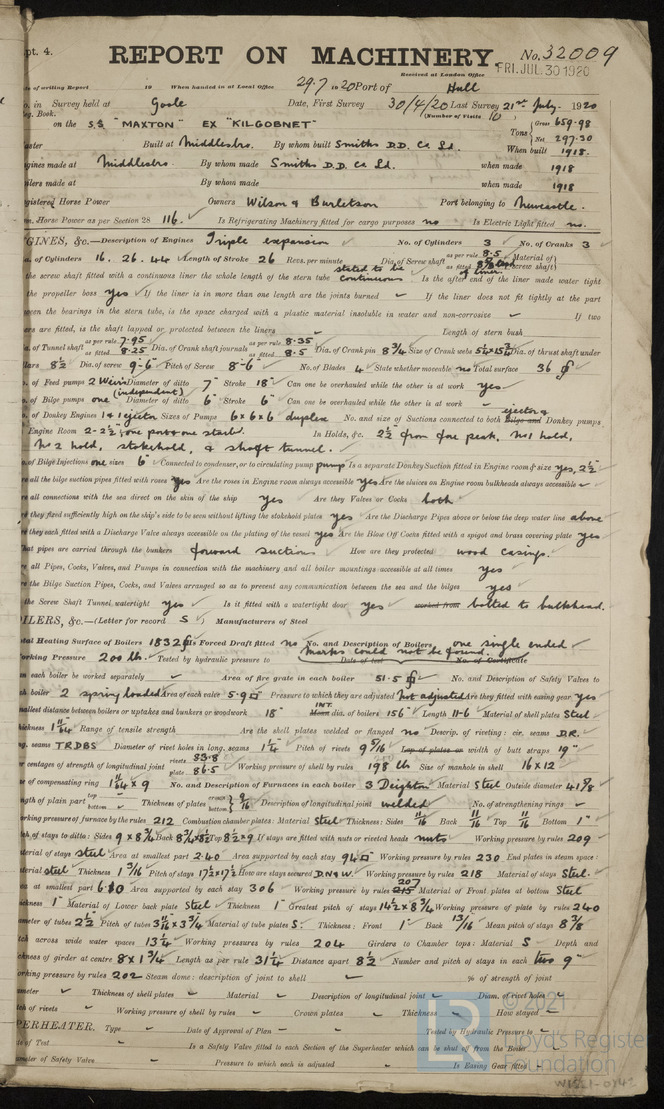 pt. 4.
REPORT ON MACHINERY. No. 32009
Received at London Office FRI. JUL. 30 1920
of writing Report 19 When handed in at Local Office 29.7.1920 Port of Hull
in Survey held at Goole Date, First Survey 30/4/20 Last Survey 21st July 1920
Book. (Number of Visits 10)
on the S.S "MAXTON" EX "KILGOBNET" Tons Gross 659.98 Net 297.30
Built at Middlesbro. By whom built Smiths D.D. Co Ld. When built 1918.
gines made at Middlesbro. By whom made Smiths D.D. Co Ld. when made 1918
ilers made at By whom made when made 1918
gistered Horse Power Owners Wilson & Burletson Port belonging to Newcastle.
m. Horse Power as per Section 28 116. Is Refrigerating Machinery fitted for cargo purposes no Is Electric Light fitted no.
GINES, &c.—Description of Engines Triple expansion No. of Cylinders 3 No. of Cranks 3
of Cylinders 16. 26. 44 Length of Stroke 26 Revs. per minute Dia. of Screw shaft as per rule 8.5 as fitted Material of screw shaft
the screw shaft fitted with a continuous liner the whole length of the stern tube stated to be continuous Is the after end of the liner made water tight
the propeller boss yes If the liner is in more than one length are the joints burned If the liner does not fit tightly at the part
ween the bearings in the stern tube, is the space charged with a plastic material insoluble in water and non-corrosive If two
ers are fitted, is the shaft lapped or protected between the liners Length of stern bush
of Tunnel shaft as per rule 7.95 as fitted 8.25 Dia. of Crank shaft journals as per rule 8.35 as fitted 8.5 Dia. of Crank pin 8 3/4 Size of Crank webs Dia. of thrust shaft under
llars 8 1/2 Dia. of screw 9-6 Pitch of Screw 8-6 No. of Blades 4 State whether moveable no Total surface 36
of Feed pumps 2 Weirs (independent) Diameter of ditto 7" Stroke 18" Can one be overhauled while the other is at work yes
of Bilge pumps one Diameter of ditto 6" Stroke 6" Can one be overhauled while the other is at work
of Donkey Engines 1 & ejector Sizes of Pumps 6x6x6 duplex No. and size of Suctions connected to both Bilge and Donkey pumps ejector &
Engine Room 2-2 1/2; one port & one starbd. In Holds, &c. 2 1/2 from fore peak, no1 hold,
no 2 hold, stokehold, & shaft tunnel.
of Bilge Injections one sizes 6" Connected to condenser, or to circulating pump pump Is a separate Donkey Suction fitted in Engine room & size yes, 2 1/2
re all the bilge suction pipes fitted with roses yes Are the roses in Engine room always accessible yes Are the sluices on Engine room bulkheads always accessible
all connections with the sea direct on the skin of the ship yes Are they Valves or Cocks both
they fixed sufficiently high on the ship's side to be seen without lifting the stokehold plates yes Are the Discharge Pipes above or below the deep water line above
they each fitted with a Discharge Valve always accessible on the plating of the vessel yes Are the Blow Off Cocks fitted with a spigot and brass covering plate yes
hat pipes are carried through the bunkers forward suctions How are they protected wood casings.
all Pipes, Cocks, Valves, and Pumps in connection with the machinery and all boiler mountings accessible at all times yes
the Bilge Suction Pipes, Cocks, and Valves arranged so as to prevent any communication between the sea and the bilges yes
the Screw Shaft Tunnel watertight yes Is it fitted with a watertight door yes worked from bolted to bulkhead.
ILERS, &c.—(Letter for record S) Manufacturers of Steel
tal Heating Surface of Boilers 1832 Is Forced Draft fitted no No. and Description of Boilers one single ended
orking Pressure 200 lb. Tested by hydraulic pressure to Date of test No. of Certificate marks could not be found.
each boiler be worked separately Area of fire grate in each boiler 51.5 No. and Description of Safety Valves to
h boiler 2 spring loaded Area of each valve 5.9 Pressure to which they are adjusted not adjusted Are they fitted with easing gear yes
allest distance between boilers or uptakes and bunkers or woodwork 18" INT. Mean dia. of boilers 156" Length 11-6 Material of shell plates Steel
ickness 1 11/64 Range of tensile strength Are the shell plates welded or flanged no Descrip. of riveting: cir. seams D.R.
ng. seams TRDBS Diameter of rivet holes in long. seams 1 1/4 Pitch of rivets 9 5/16 Lap of plates or width of butt straps 19"
centages of strength of longitudinal joint rivets 83.8 plate 86.5 Working pressure of shell by rules 198 lb Size of manhole in shell 16x12
of compensating ring 1 11/64 x 9 No. and Description of Furnaces in each boiler 3 Deighton Material Steel Outside diameter 41 5/8
ngth of plain part top bottom Thickness of plates crown bottom 9/16 Description of longitudinal joint welded No. of strengthening rings
rking pressure of furnace by the rules 212 Combustion chamber plates: Material Steel Thickness: Sides 11/16 Back 11/16 Top 11/16 Bottom 1"
ch of stays to ditto: Sides 9x8 3/4 Back 8 3/4x8 1/2 Top 8 1/2x9 If stays are fitted with nuts or riveted heads nuts Working pressure by rules 209
terial of stays steel Area at smallest part 2.40 Area supported by each stay 94 Working pressure by rules 230 End plates in steam space:
terial steel Thickness 1 3/16 Pitch of stays 17 1/2x17 1/2 How are stays secured D.N&W. Working pressure by rules 218 Material of stays Steel.
ea at smallest part 6.10 Area supported by each stay 306 Working pressure by rules 207 Material of Front plates at bottom Steel
ickness 1" Material of Lower back plate Steel Thickness 1" Greatest pitch of stays 14 1/2x8 3/4 Working pressure of plate by rules 240
ameter of tubes 2 1/2 Pitch of tubes 3 11/16x3 3/4 Material of tube plates S. Thickness: Front 1" Back 13/16 Mean pitch of stays 8 7/8
tch across wide water spaces 13 1/4 Working pressures by rules 204 Girders to Chamber tops: Material S Depth and
ckness of girder at centre 8x1 3/4 Length as per rule 31 1/4 Distance apart 8 1/2 Number and pitch of stays in each two 9"
orking pressure by rules 202 Steam dome: description of joint to shell % of strength of joint
ameter Thickness of shell plates Material Description of longitudinal joint Diam. of rivet holes
tch of rivets Working pressure of shell by rules Crown plates Thickness How stayed
PERHEATER. Type Date of Approval of Plan Tested by Hydraulic Pressure to
te of Test Is a Safety Valve fitted to each Section of the Superheater which can be shut off from the Boiler
meter of Safety Valve Pressure to which each is adjusted Is Easing Gear fitted
© 2021
Lloyd's Register
Foundation